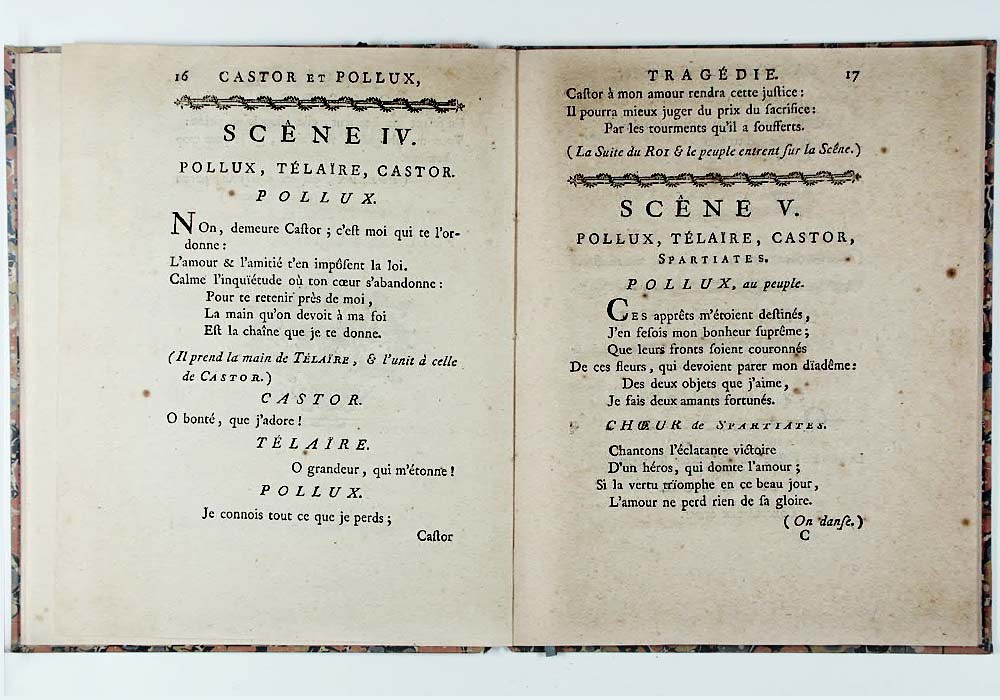 16 CASTOR ET POLLUX,
SCÊNE IV.
POLLUX, TÉLAÏRE, CASTOR.
POLLUX.
NOn, demeure Caſtor ; c'eſt moi qui te l'or-
donne :
L'amour & l'amitié t'en impôſent la loi.
Calme l'inquïétude où ton cœur s'abandonne :
Pour te retenir près de moi,
La main qu'on devoit à ma foi
Eſt la chaîne que je te donne.
(Il prend la main de TÉLAÏRE, & l'unit à celle
de CASTOR.)
CASTOR.
O bonté, que j'adore !
TÉLAÏRE.
O grandeur, qui m'étonne !
POLLUX.
Je connois tout ce que je perds ;
Caſtor
TRAGÉDIE. 17
Caſtor à mon amour rendra cette juſtice :
Il pourra mieux juger du prix du ſacrifice :
Par les tourments qu'il a ſoufferts.
(La Suite du ROI & le peuple entrent ſur la Scêne.)
SCÊNE V.
POLLUX, TÉLAÏRE, CASTOR,
SPARTIATES.
POLLUX, au peuple.
CES apprêts m'étoient deſtinés,
J'en feſois mon bonheur ſuprême ;
Que leurs fronts ſoient couronnés
De ces fleurs, qui devoient parer mon dïadême :
Des deux objets que j'aime,
Je fais deux amants fortunés.
CHŒUR de SPARTIATES.
Chantons l'éclatante victoire
D'un héros, qui domte l'amour ;
Si la vertu trïomphe en ce beau jour,
L'amour ne perd rien de ſa gloire.
(On danſe.)
C